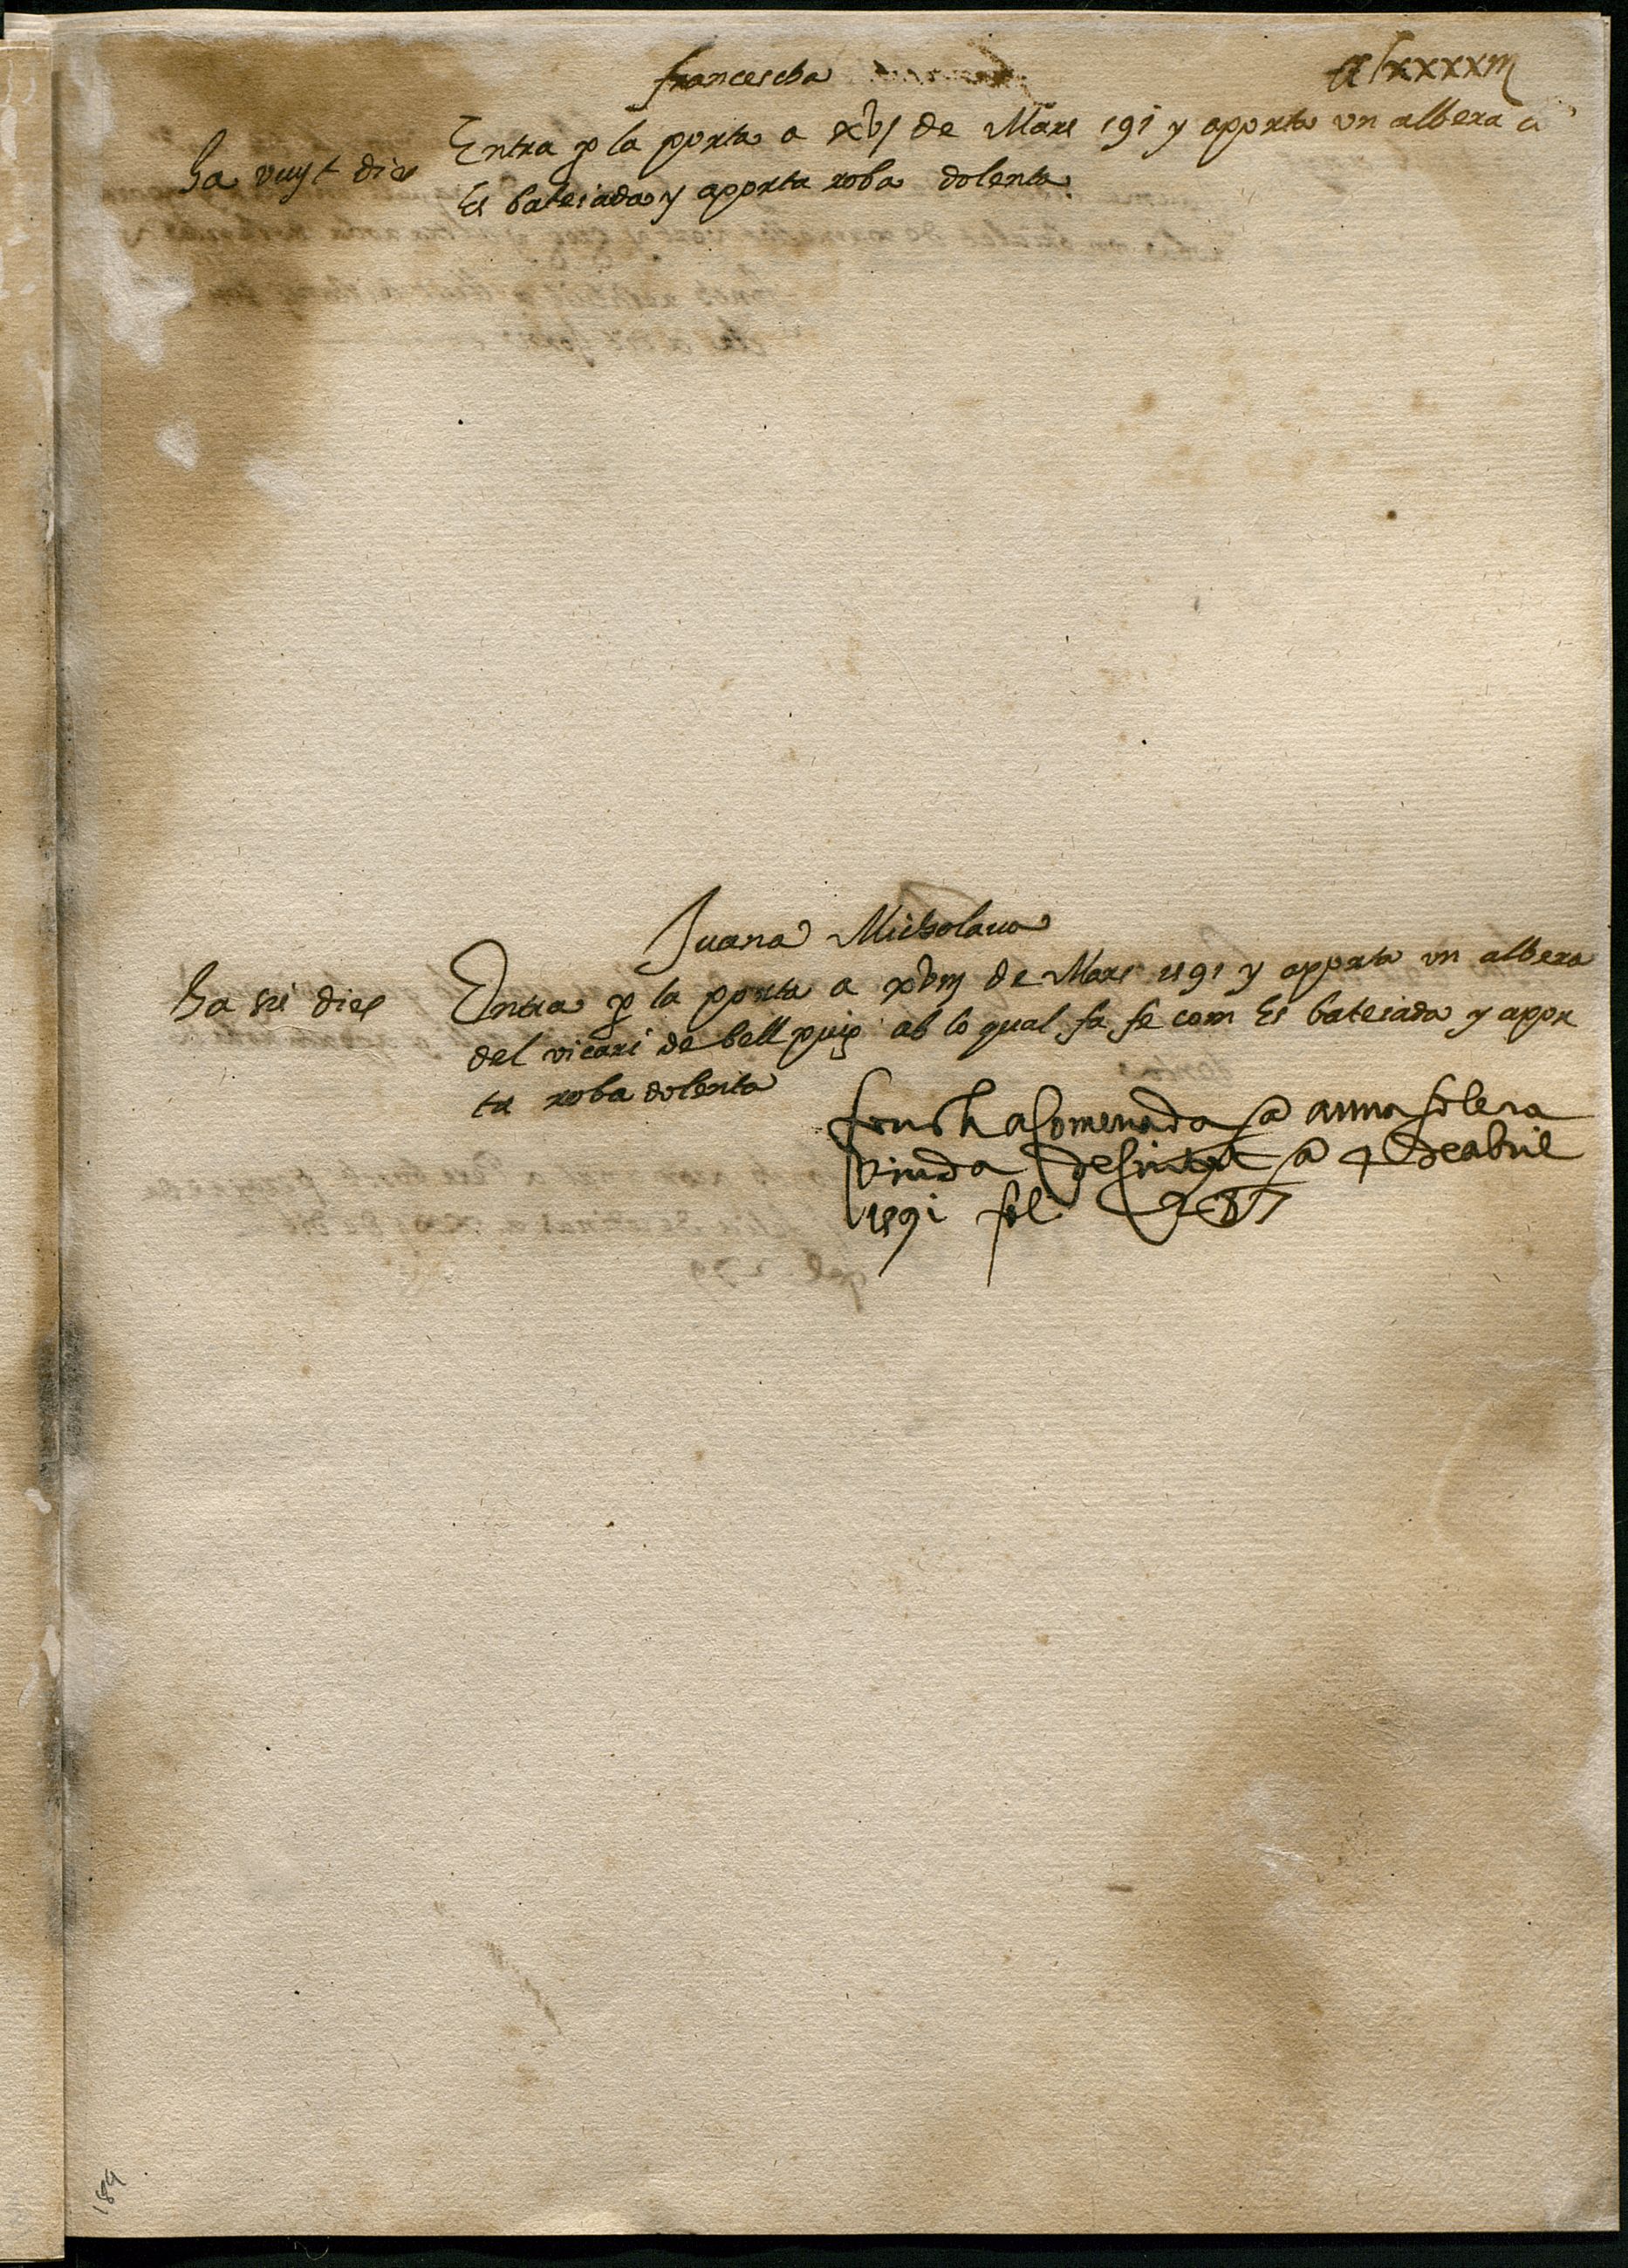 francescha
clxxxxiij
Entra p la porta a xvj de Mars 191 y apporta vn albera a
ha vuyt dies
Es bateiada y apporta roba dolenta
Juana Micholaua
ha sis dies
Entra p la porta a xviij de Mars 1591 y apporta vn albera
del vicari de bellpuig ab lo qual fa fe com Es bateiada y appor
ta roba dolenta
fonch acomenada a anna solera
viuda de sintat a 4 de abril
1591 fol 287
184